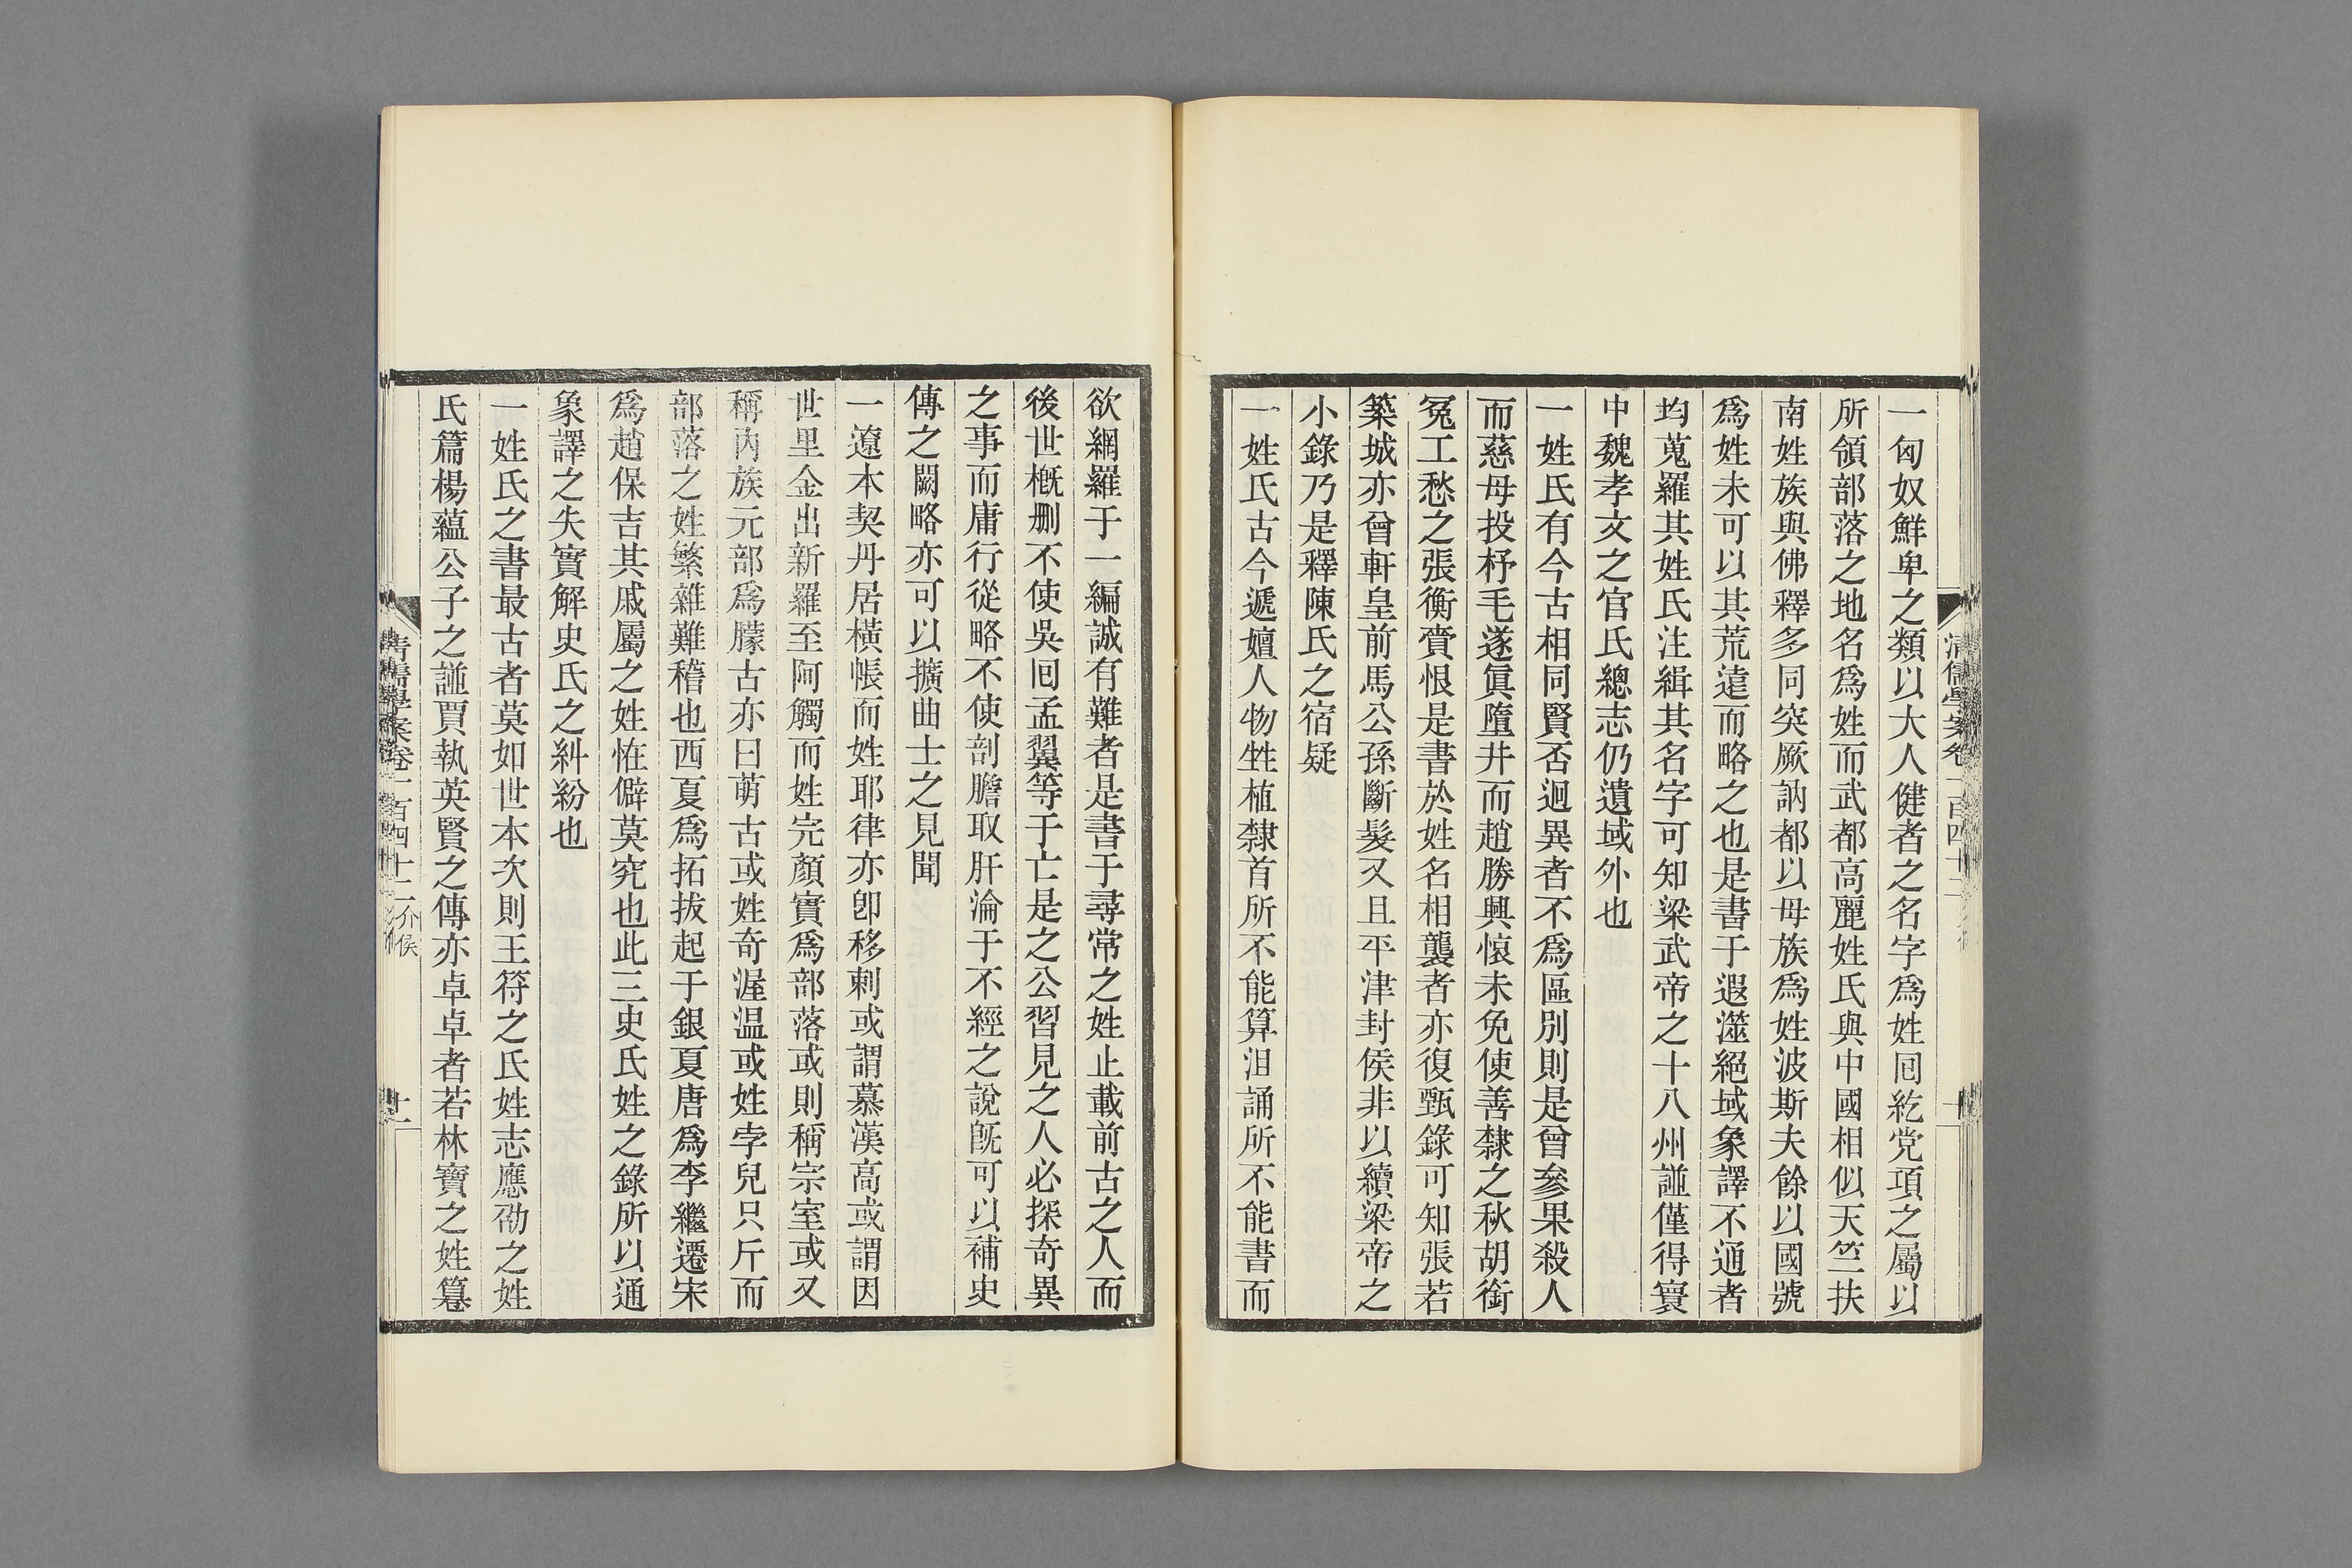 一匈奴鮮卑之類以大人健者之名字爲姓回紇党項之屬以
所領部落之地名爲姓而武都高麗姓氏與中國相似天竺扶
南姓族與佛釋多同突厥訥都以母族爲姓波斯夫餘以國號
爲姓未可以其荒遠而略之也是書于遐澨絕域象譯不通者
均蒐羅其姓氏注緝其名字可知梁武帝之十八州譜僅得寰
中魏孝文之官氏總志仍遺域外也
一姓氏有今古相同賢否迥異者不爲區別則是曾參果殺人
而慈母投杼毛遂眞墮井而趙勝興懷未免使善隸之秋胡銜
冤工愁之張衡賫恨是書於姓名相襲者亦復甄錄可知張若
築城亦曾軒皇前馬公孫斷髮又且平津封侯非以續梁帝之
小錄乃是釋陳氏之宿疑
一姓氏古今遞嬗人物生植隸首所不能算沮誦所不能書而
清儒學案卷一百四十二
欲網羅于一編誠有難者是書于尋常之姓止載前古之人而
後世槪删不使吳回孟翼等于亡是之公習見之人必探奇異
之事而庸行從略不使剖膽取肝淪于不經之說旣可以補史
傳之闕略亦可以擴曲士之見聞
一遼本契丹居橫帳而姓耶律亦卽移剌或謂慕漢高或謂因
世里金出新羅至阿觸而姓完顏實爲部落或則稱宗室或又
稱內族元部爲朦古亦曰萌古或姓奇渥温或姓孛兒只斤而
部落之姓繁雜難稽也西夏爲拓拔起于銀夏唐爲李繼遷宋
爲趙保吉其戚屬之姓恠僻莫究也此三史氏姓之錄所以通
象譯之失實解史氏之糾紛也
一姓氏之書最古者莫如世本次則王符之氏姓志應劭之姓
氏篇楊蘊公子之譜賈執英賢之傳亦卓卓者若林寶之姓篡
清儒學案卷一百四十二 介侯